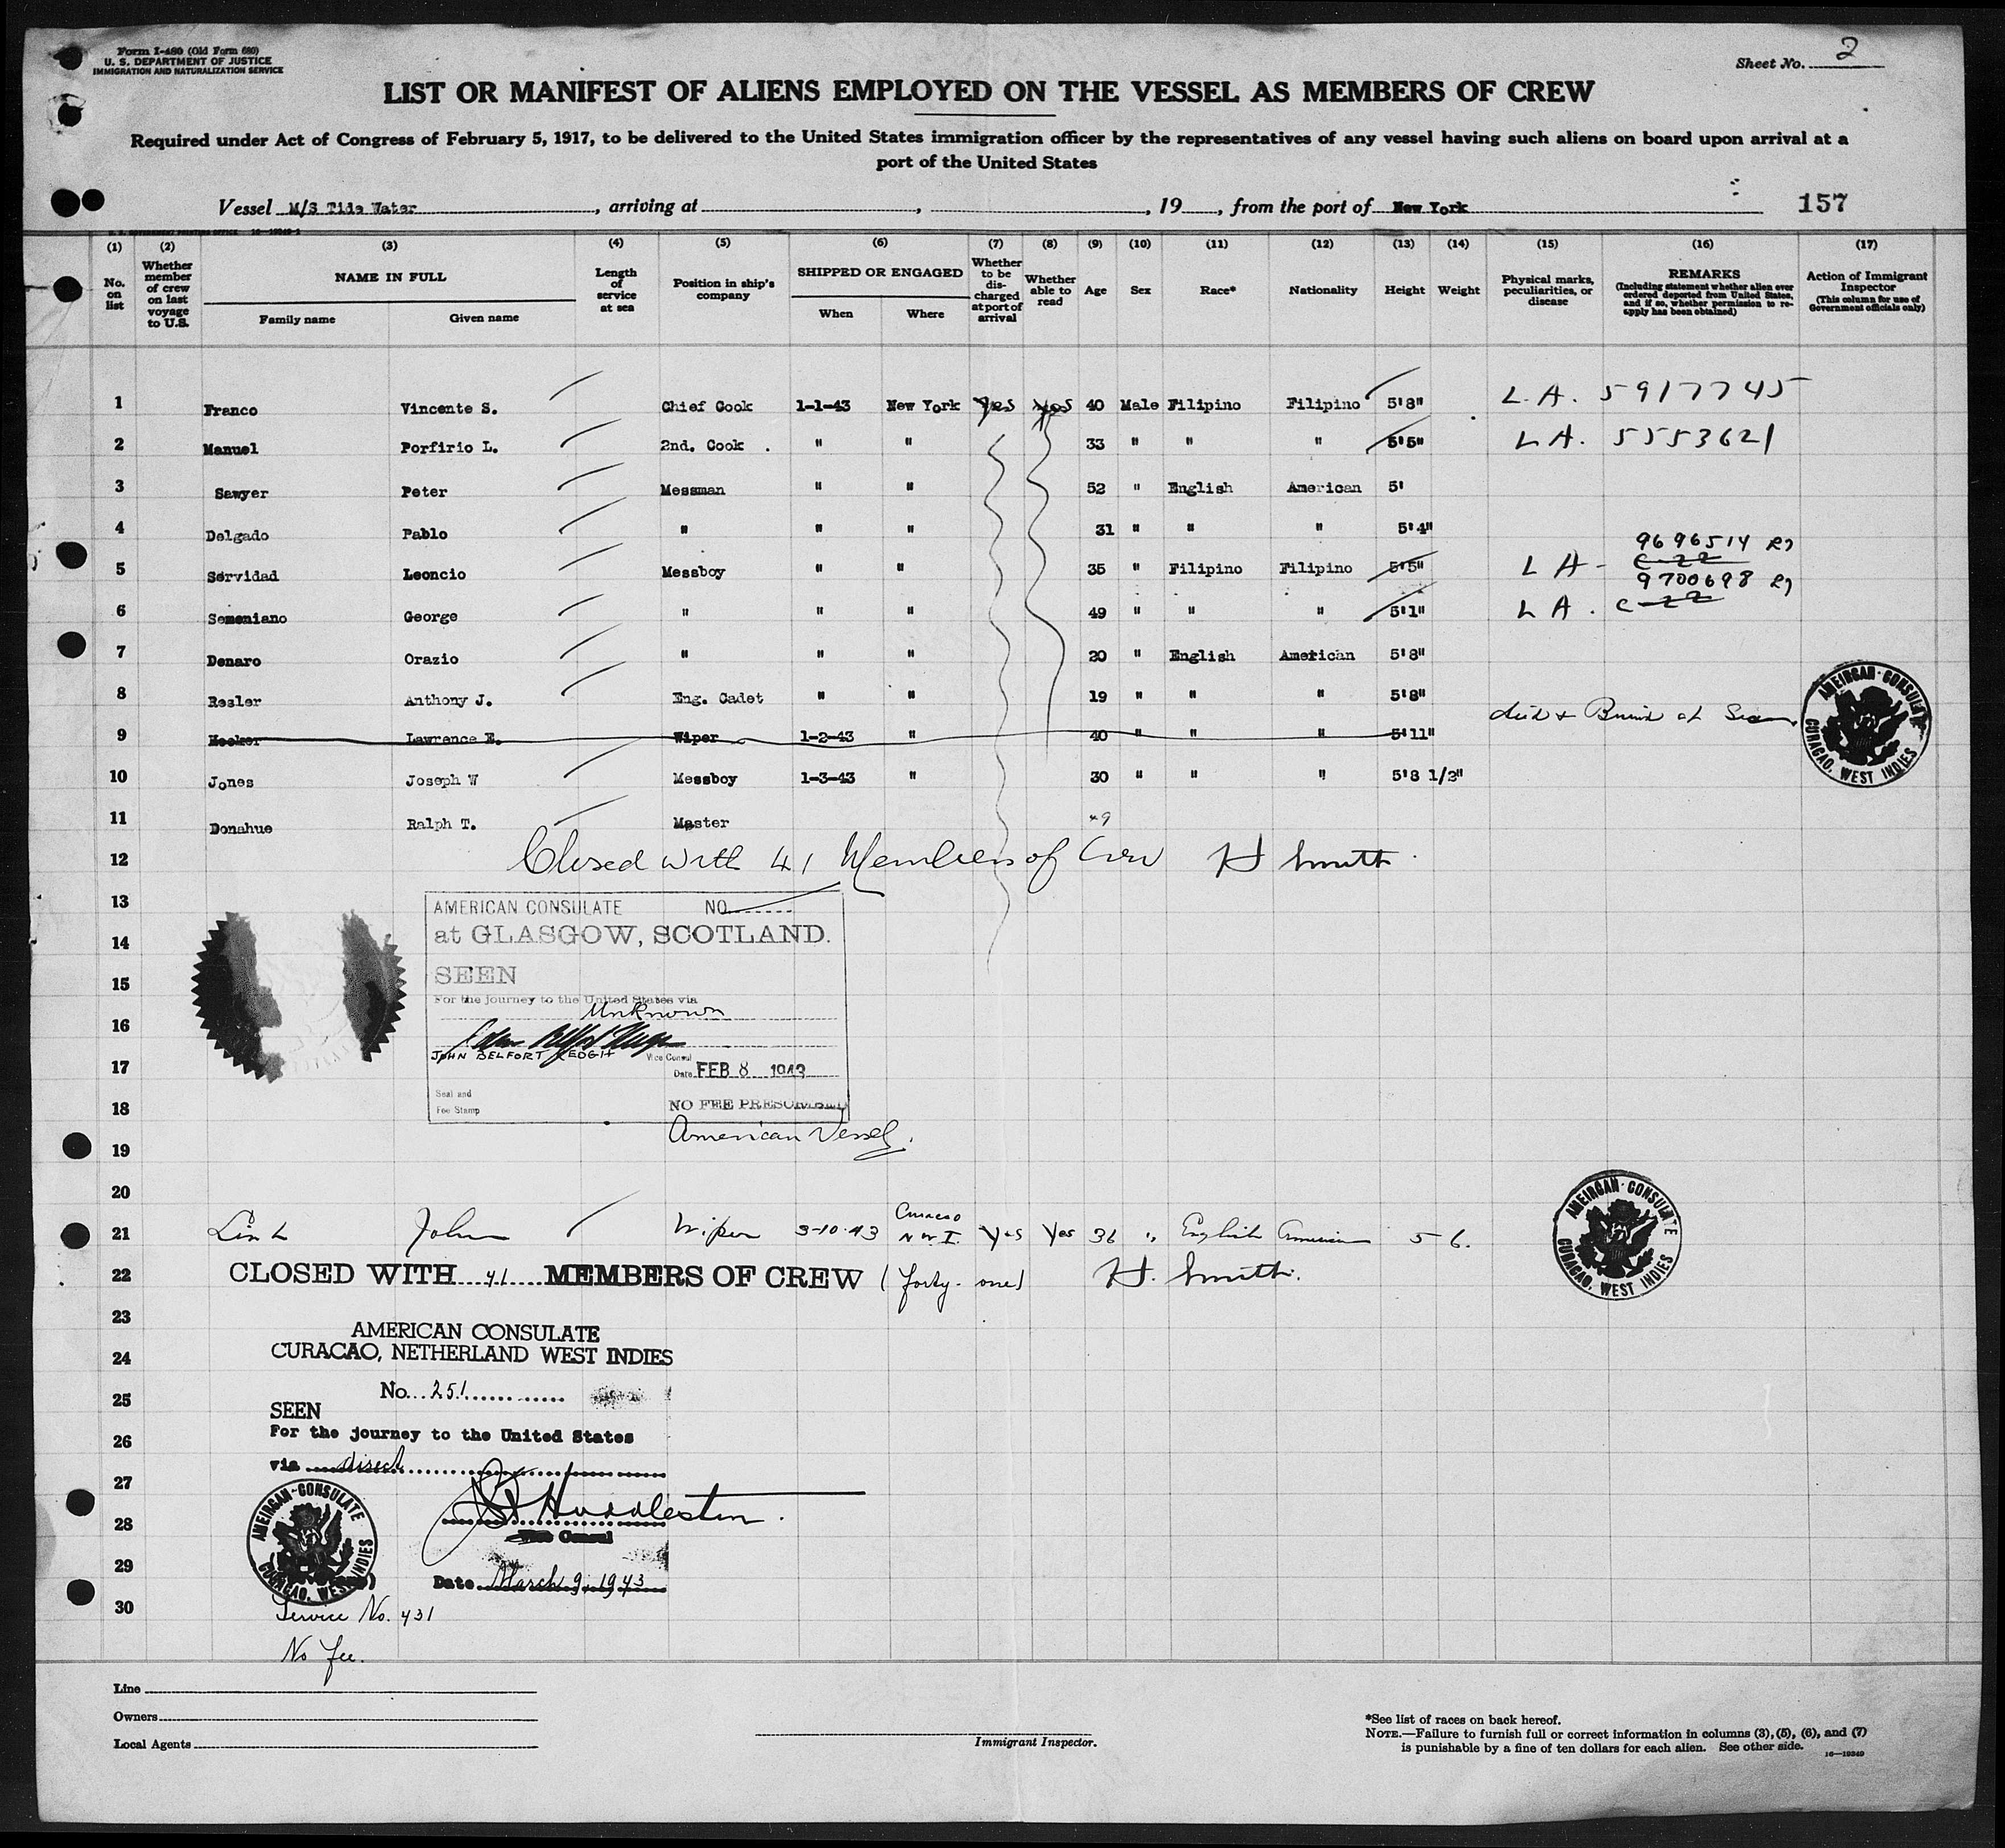 Form I-480 (Old Form 680)
U. S. DEPARTMENT OF JUSTICE
IMMIGRATION AND NATURALIZATION SERVICE
Sheet No. 2
LIST OR MANIFEST OF ALIENS EMPLOYED ON THE VESSEL AS MEMBERS OF CREW
Required under Act of Congress of February 5, 1917, to be delivered to the United States immigration officer by the representatives of any vessel having such aliens on board upon arrival at a
port of the United States
Vessel M/S Tide Water, arriving at , , 19 , from the port of New York 157
(1) (2) (3) (4) (5) (6) (7) (8) (9) (10) (11) (12) (13) (14) (15) (16) (17)
No. on list
Whether member of crew on last voyage to U.S.
NAME IN FULL
Family name Given name
Length of service at sea
Position in ship's company
SHIPPED OR ENGAGED
When Where
Whether to be discharged at port of arrival
Whether able to read
Age Sex Race* Nationality Height Weight
Physical marks, peculiarities, or disease
REMARKS
(Including statement whether alien ever ordered deported from United States, and if so, whether permission to re-apply has been obtained)
Action of Immigrant Inspector
(This column for use of Government officials only)
1 Franco Vincente S. Chief Cook 1-1-43 New York Yes Yes 40 Male Filipino Filipino 5'8" L.A. 5917745
2 Manuel Porfirio L. 2nd. Cook . " " 33 " " " 5'5" LA. 5553621
3 Sawyer Peter Messman " " 52 " English American 5'
4 Delgado Pablo " " " 31 " " " 5'4"
9696514
5 Servidad Leoncio Messboy " " 35 " Filipino Filipino 5'5" LA- C-22
9700698
6 Semeniano George " " " 49 " " " 5'1" LA. C-22
7 Denaro Orazio " " " 20 " English American 5'8"
8 Resler Anthony J. Eng. Cadet " " 19 " " " 5'8"
at Sea
9 Hooker Lawrence E. Wiper 1-2-43 " 40 " " " 5'11"
AMEIRCAN·CONSULATE
CURACAO, WEST INDIES
10 Jones Joseph W Messboy 1-3-43 " 30 " " " 5'8 1/2"
11 Donahue Ralph T. Master 49
12 Closed with 41 Members of Crew H Smith
13
AMERICAN CONSULATE NO
14
at GLASGOW, SCOTLAND.
15
SEEN
For the journey to the United States via
Unknown
16
JOHN BELFORT KEOGH Vice Consul
17
Date FEB 8 1943
Seal and
Fee Stamp
18
NO FEE PRESCRIBED
American Vessel.
19
20
21 John Wiper 3-10-43 Curacao N.W.I. Yes Yes 36 " English American 5 6.
AMEIRCAN·CONSULATE
CURACAO, WEST INDIES
22 CLOSED WITH 41 MEMBERS OF CREW (forty-one) H. Smith.
23
AMERICAN CONSULATE
24
CURACAO, NETHERLAND WEST INDIES
25
No. 251
SEEN
26
For the journey to the United States
via direct
27
AMEIRCAN·CONSULATE
CURACAO, WEST INDIES
Huddleston.
28
Vice Consul
29
Date March 9, 1943
30
Service No. 431
No fee.
Line
Owners
Local Agents
Immigrant Inspector.
*See list of races on back hereof.
NOTE.—Failure to furnish full or correct information in columns (3), (5), (6), and (7)
is punishable by a fine of ten dollars for each alien. See other side.
16—19249